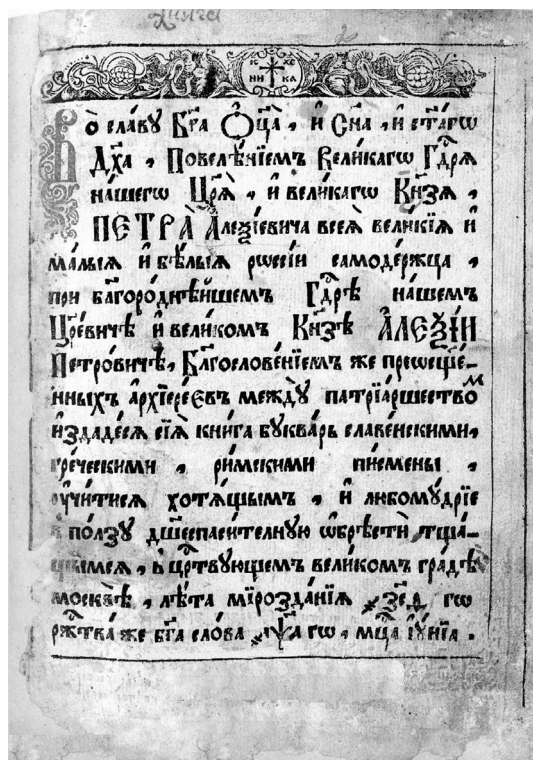 І҃С Х҃С
НИ КА
Во̀ сла́вꙋ Бг҃а Ѻ҆ц҃а̀, и҆ Сн҃а, и҆ ст҃а́гѡ
Дх҃а, Повелѣ́нїемъ Вели́кагѡ Гдⷭ҇рѧ
на́шегѡ Цр҃ѧ̀, и҆ вели́кагѡ Кн҃зѧ,
ПЕТРА̀ А҆леѯі́евича всеѧ̀ вели́кїѧ и҆
ма́лыѧ и҆ бѣ́лыѧ рѡссі́и самоде́ржца,
при бл҃горо́днѣйшемъ Гдⷭ҇рѣ на́шемъ
Цр҃е́вичѣ и҆ вели́комъ Кн҃зѣ А҆ЛЕѮІ́И
Петро́вичѣ, Бл҃гослове́нїемъ же преѡсщ҃е́-
нныхъ а҆рхїере́євъ междꙋ̀ патрїа́ршествоⷨ
и҆здаде́сѧ сїѧ̀ книга бꙋква́рь славе́нскими,
гре́ческими, ри́мскими писмены,
ᲂу҆чи́тисѧ хотѧ́щымъ, и҆ любомꙋ́дрїе
в по́лзꙋ дш҃еспаси́телнꙋю ѡ҆брѣстѝ тща-
щымсѧ, в црⷭ҇твꙋющемъ вели́комъ гра́дѣ
москвѣ̀, лѣ́та мїрозда́нїѧ ҂зс҃ѳ гѡ
ржⷭ҇тва́ же бг҃а сло́ва ҂аѱ҃а гѡ, мцⷭ҇а і҆ꙋ́нїа.